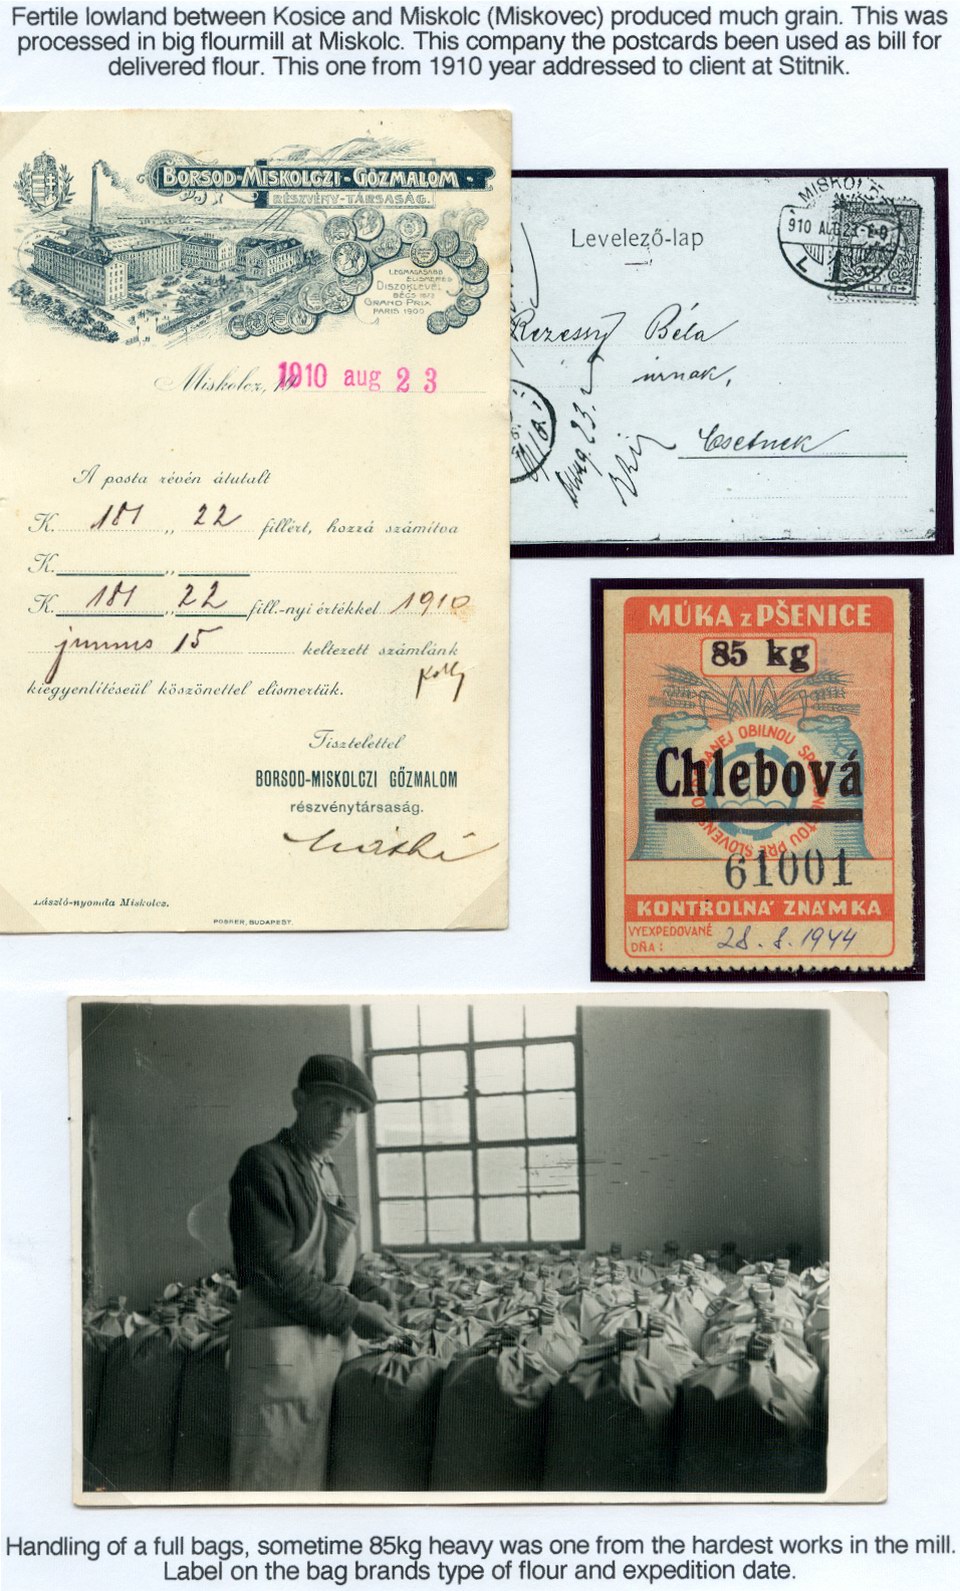 Fertile lowland between Kosice and Miskolc (Miskovec) produced much grain. This was
processed in big flourmill at Miskolc. This company the postcards been used as bill for
delivered flour. This one from 1910 year addressed to client at Stitnik.
BORSOD-MISKOLCZI-GŐZMALOM
RÉSZVÉNY-TÁRSASÁG.
LEGMAGASABB
ELISMERÉS
DISZOKLEVÉL
BÉCS 1873
GRAND PRIX
PARIS 1900
Miskolcz, 1910 aug 23
A posta révén átutalt
K. 181 „ 22 fillért, hozzá számítva
K. „
K. 181 „ 22 fill.-nyi értékkel 1910
junius 15 keltezett számlánk
kiegyenlítéseül köszönettel elismertük.
Tisztelettel
BORSOD-MISKOLCZI GŐZMALOM
részvénytársaság.
László-nyomda Miskolcz.
POSNER, BUDAPEST.
MISKOLC
910 AUG 23
Levelező-lap
Béla
úrnak,
Csetnek
MÚKA z PŠENICE
85 kg
Chlebová
61001
KONTROLNÁ ZNÁMKA
VYEXPEDOVANÉ
DŇA: 28. 8. 1944
Handling of a full bags, sometime 85kg heavy was one from the hardest works in the mill.
Label on the bag brands type of flour and expedition date.